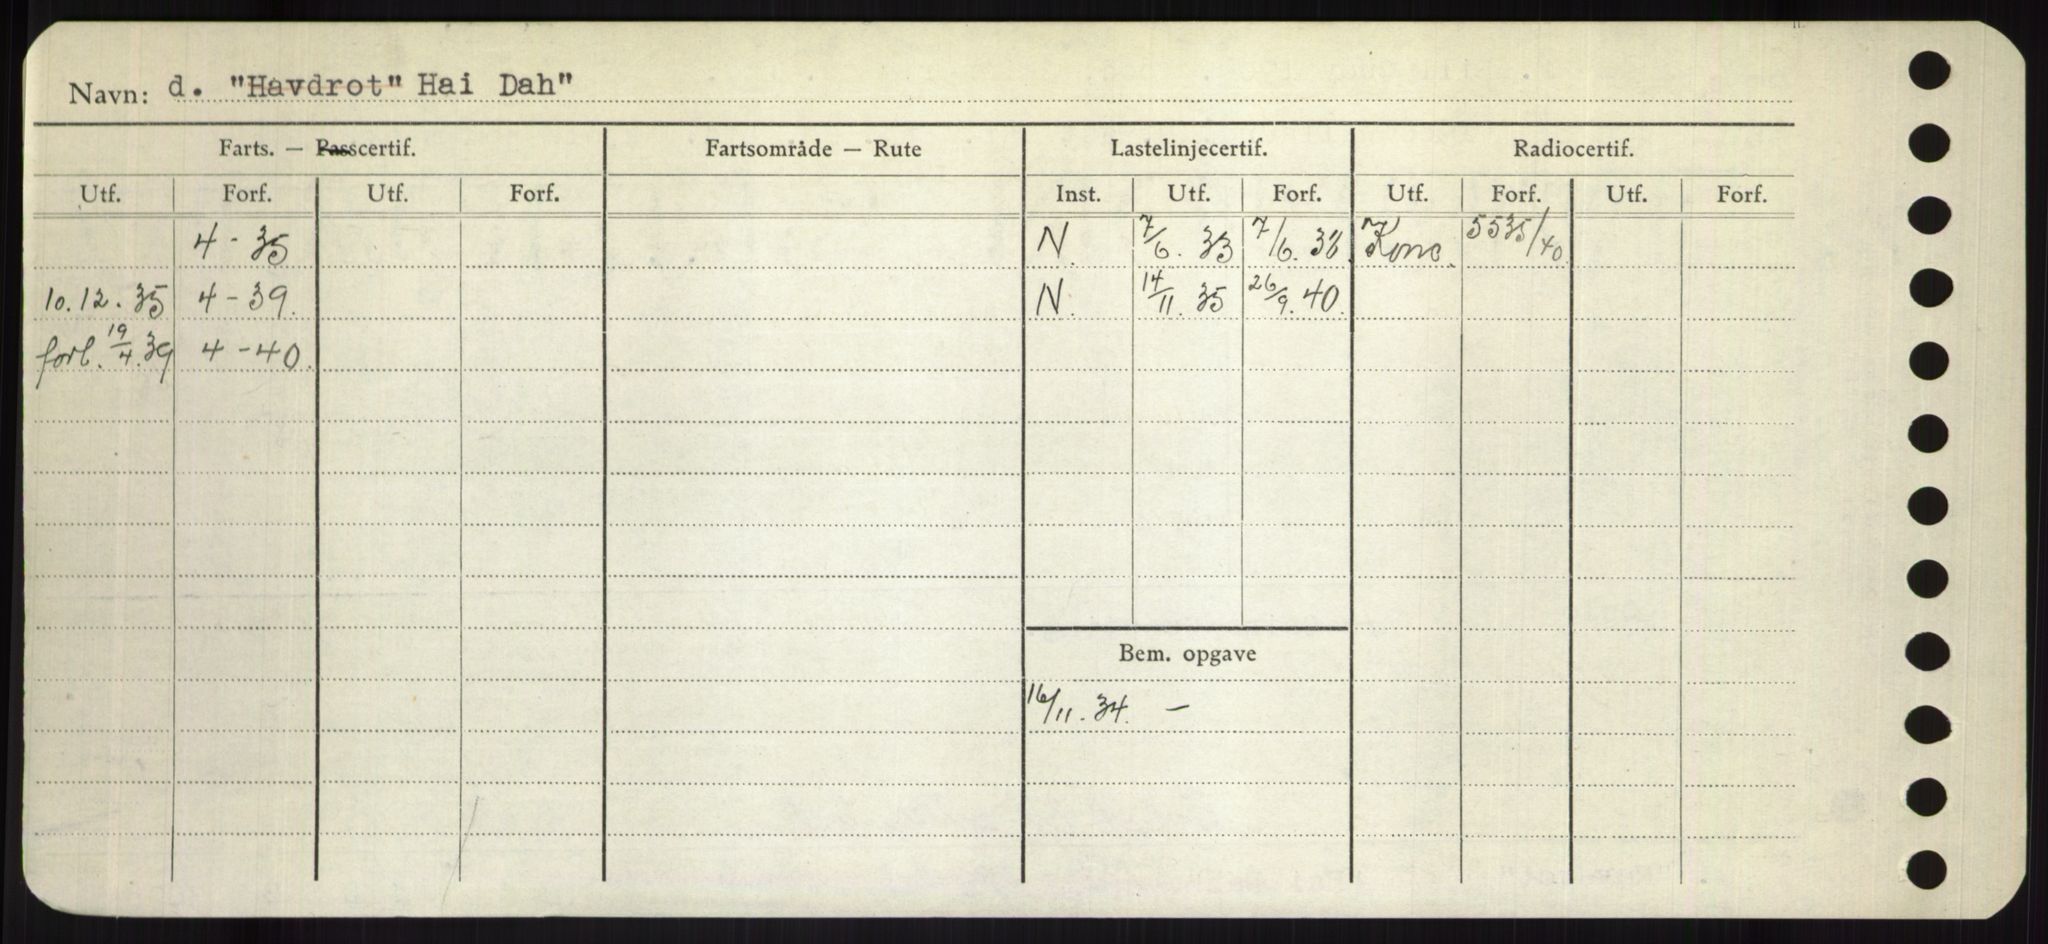 Navn: d. "Havdrot" Hai Dah"
Farts. — Passcertif. Fartsområde — Rute Lastelinjecertif. Radiocertif.
Utf. Forf. Utf. Forf. Inst. Utf. Forf. Utf. Forf. Utf. Forf.
4 - 35 N. 7/6. 33 7/6. 38. Konc. 5535/40.
10.12.35 4 - 39. N. 14/11. 35 26/9. 40.
forl. 19/4. 39 4 - 40.
Bem. opgave
16/11. 34. —